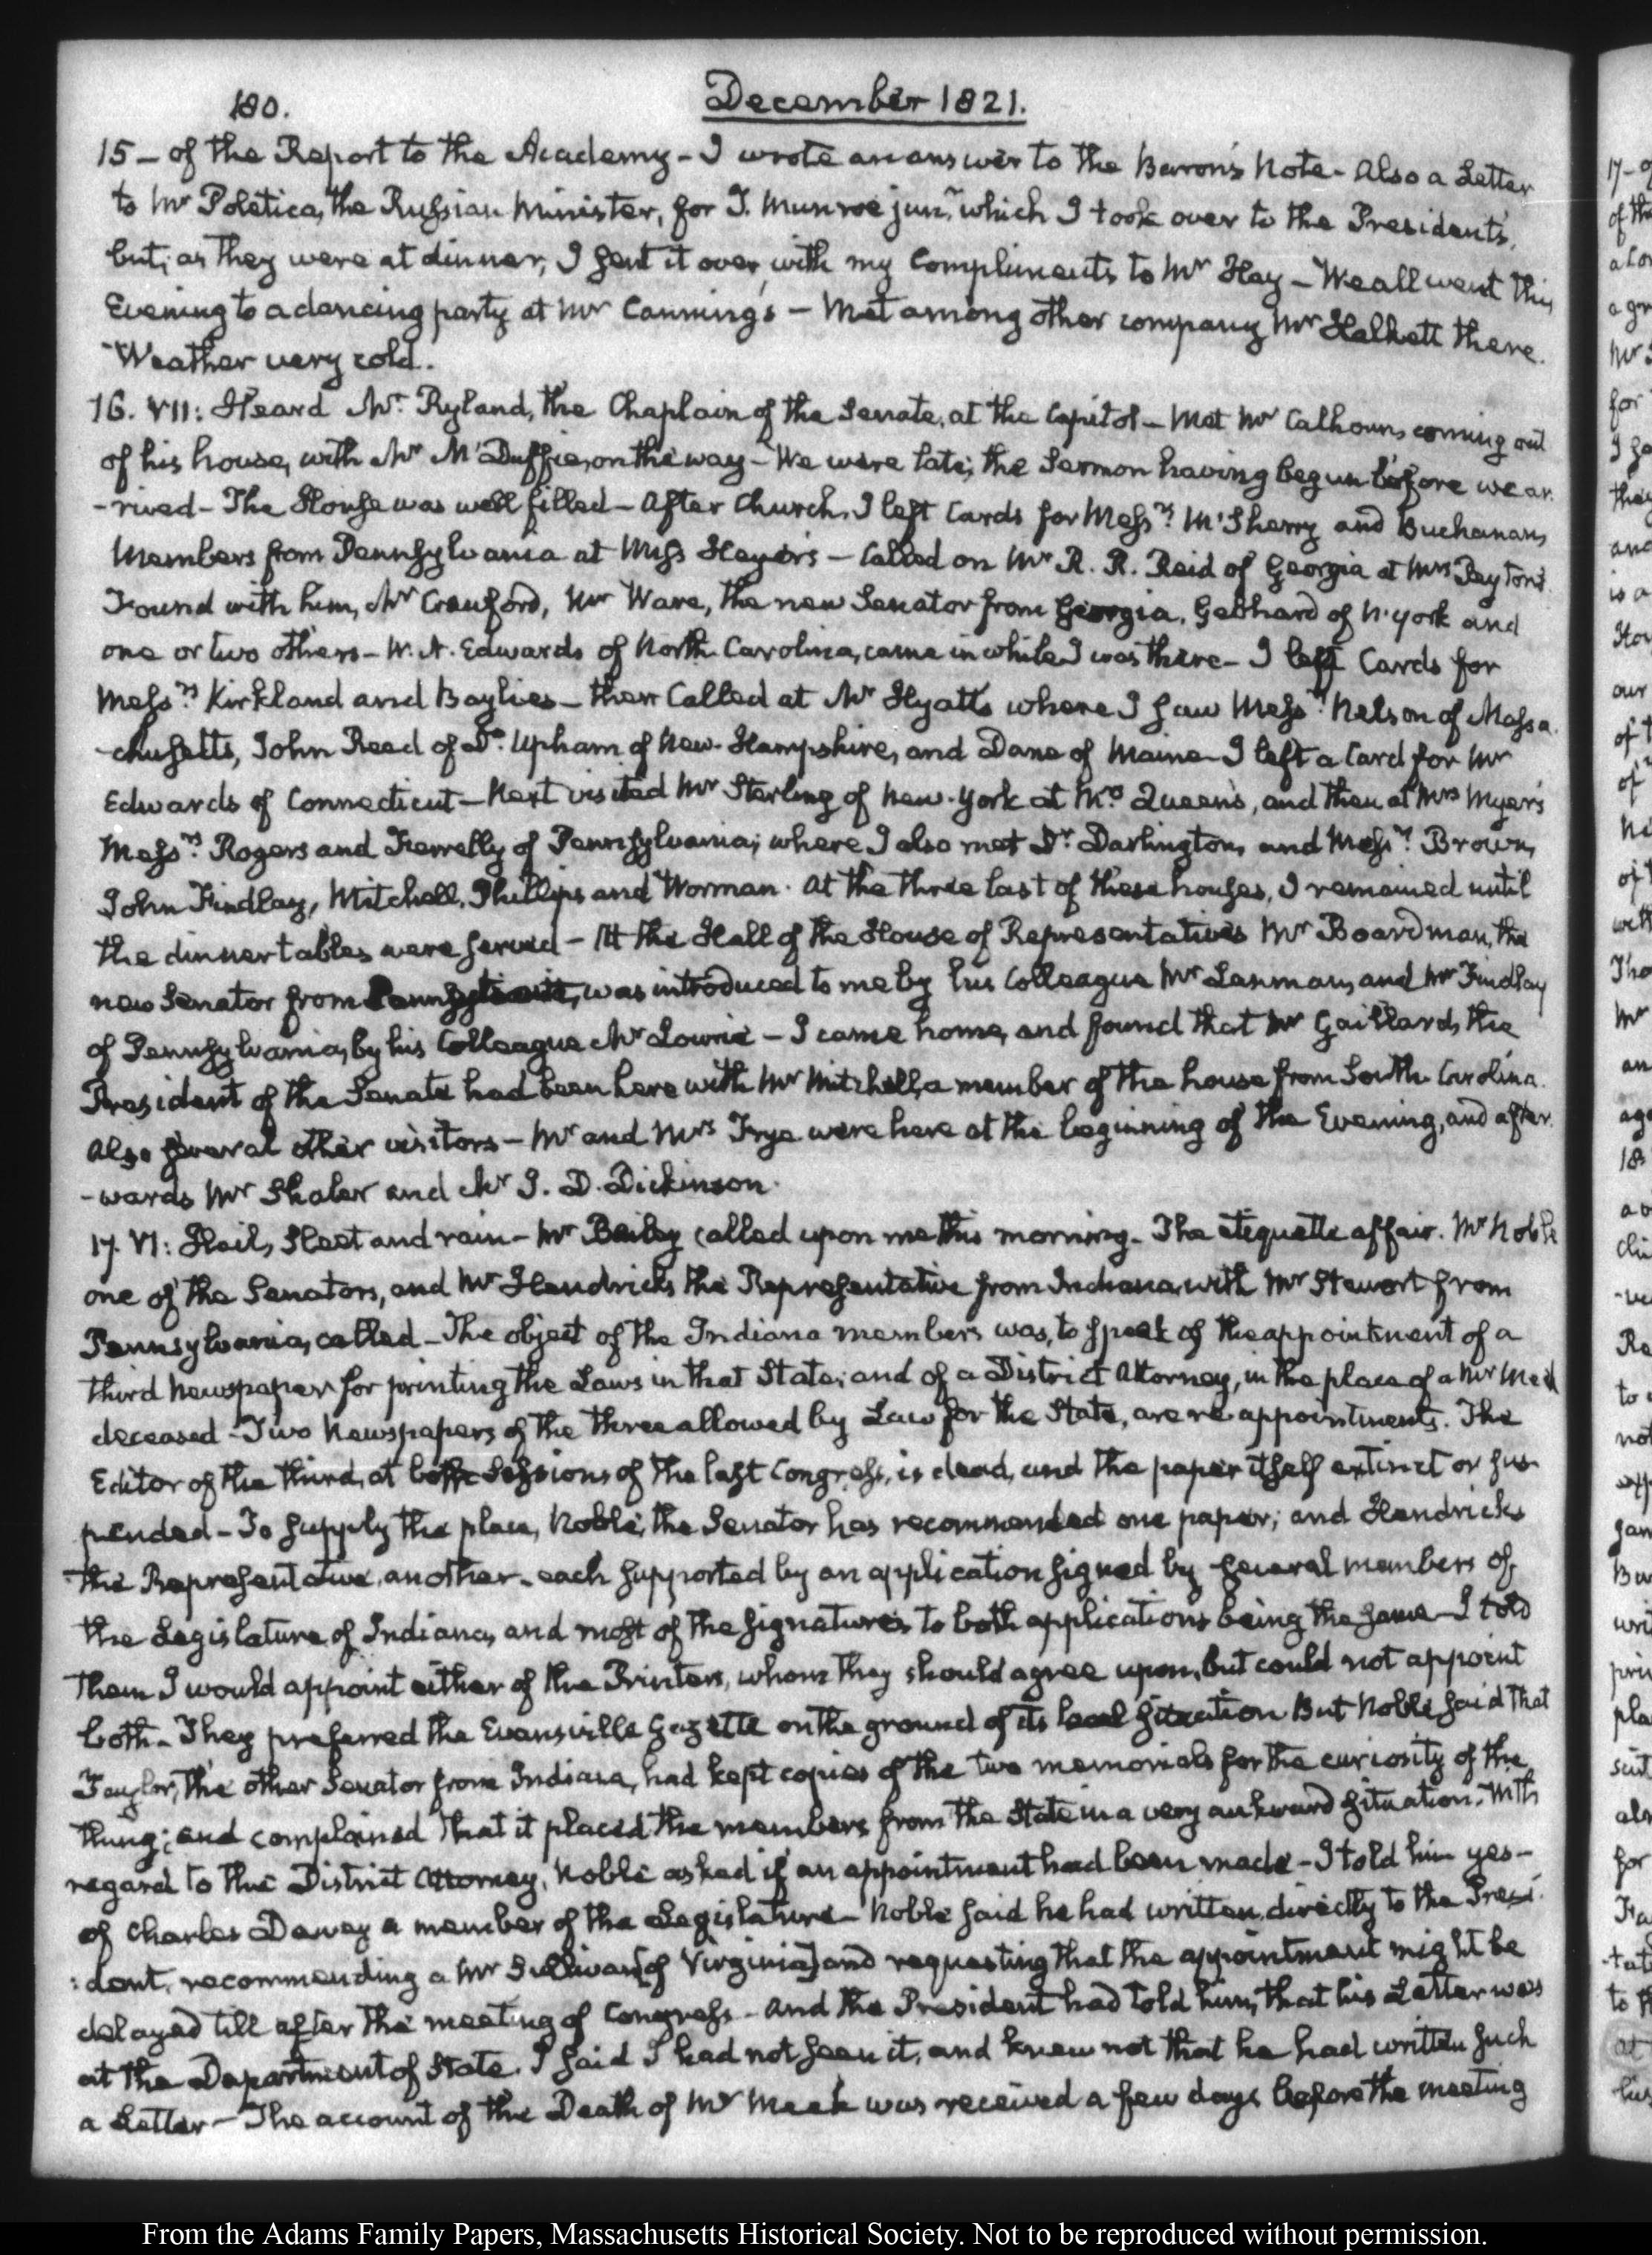 180.
December 1821.
15 – of the Report to the Academy – I wrote an answer to the Baron's Note – Also a Letter
to Mr Poletica, the Russian Minister, for J. Munroe junr. which I took over to the Presidents,
but, as they were at dinner, I sent it over, with my Compliments to Mr Hay – We all went this
Evening to a dancing party at Mr Canning's – Met among other company Mr Halkett there.
Weather very cold.
16. VII: Heard Mr. Ryland, the Chaplain of the Senate, at the Capitol – Met Mr Calhoun, coming out
of his house, with Mr McDuffie, on the way – We were late; the Sermon having begun before we ar-
-rived – The House was well filled – After Church, I left Cards for Messrs. McSherry and Buchanan,
Members from Pennsylvania at Miss Heyer's – Called on Mr R. R. Reid of Georgia at Mrs Peyton's
Found with him, Mr Crawford, Mr Ware, the new Senator from Georgia, Gebhard of N. York and
one or two others – W. N. Edwards of North-Carolina, came in while I was there – I left Cards for
Messrs. Kirkland and Baylies – then Called at Mr Hyatt's where I saw Messrs. Nelson of Massa-
-chusetts, John Reed of Do. Upham of New-Hampshire, and Dane of Maine – I left a Card for Mr
Edwards of Connecticut – Next visited Mr Sterling of New-York at McQueen's, and then at Mrs Myer's
Messrs. Rogers and Farrelly of Pennsylvania; where I also met Dr. Darlington, and Messrs. Brown,
John Findlay, Mitchell, Phillips and Worman. At the three last of these houses, I remained until
the dinner tables were served – At the Hall of the House of Representatives Mr Boardman, the
new Senator from was introduced to me by his Colleague Mr Lanman, and Mr Findlay
of Pennsylvania, by his Colleague Mr Lowrie – I came home, and found that Mr Gaillard, the
President of the Senate had been here with Mr Mitchell, a member of the house from South-Carolina.
Also several other visitors – Mr and Mrs Frye were here at the beginning of the Evening, and after-
-wards Mr Shaler and Mr J. D. Dickinson.
17. VI: Hail, Sleet and rain – Mr Bailey called upon me this morning – The etiquette affair. Mr Noble
one of the Senators, and Mr Hendricks the Representative from Indiana, with Mr Stewart from
Pennsylvania, called – The object of the Indiana members was, to speak of the appointment of a
third Newspaper for printing the Laws in that State; and of a District Attorney, in the place of a Mr Meek
deceased – Two Newspapers of the three allowed by Law for the State, are re-appointments. The
Editor of the third, at both Sessions of the last Congress, is dead, and the paper itself extinct or sus-
pended – To supply the place, Noble, the Senator has recommended one paper; and Hendricks
the Representative, another – each supported by an application signed by several members of
the Legislature of Indiana, and most of the signatures to both applications being the same – I told
them I would appoint either of the Printers, whom they should agree upon, but could not appoint
both – They preferred the Evansville Gazette on the ground of its local situation But Noble said that
Taylor, the other Senator from Indiana, had kept copies of the two memorials for the curiosity of the
thing; and complained that it placed the members from the State in a very aukward situation. With
regard to the District Attorney, Noble asked if an appointment had been made – I told him yes –
of Charles Dewey a member of the Legislature – Noble said he had written directly to the Presi-
:dent, recommending a Mr Sullivan [of Virginia] and requesting that the appointment might be
delayed till after the meeting of Congress – And the President had told him, that his Letter was
at the Department of State. I said I had not seen it, and knew not that he had written such
a Letter – The account of the Death of Mr Meek was received a few days before the meeting
From the Adams Family Papers, Massachusetts Historical Society. Not to be reproduced without permission.